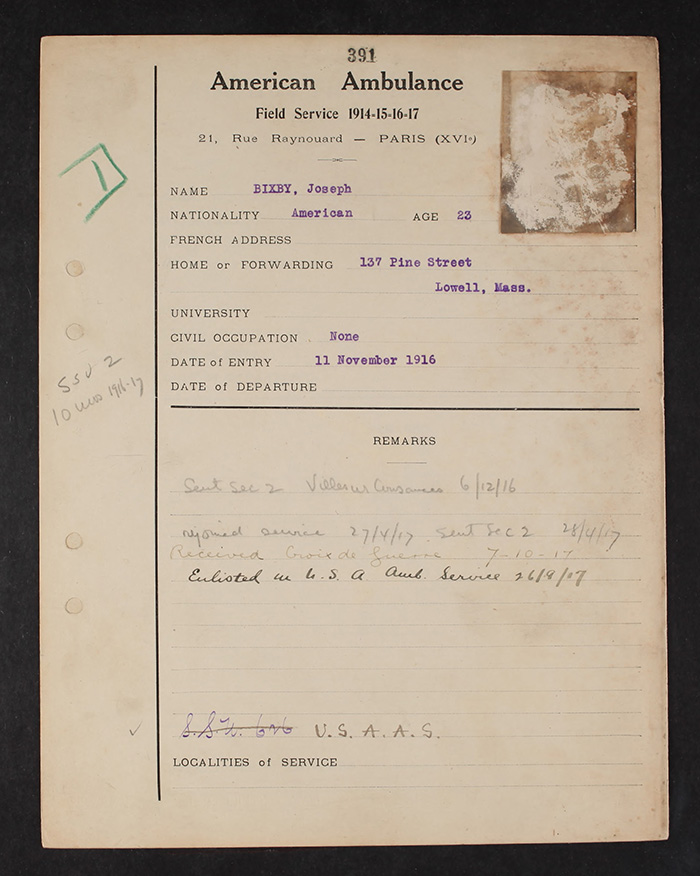 391
American Ambulance
Field Service 1914-15-16-17
21, Rue Raynouard — PARIS (XVIe)
1
NAME BIXBY, Joseph
NATIONALITY American AGE 23
FRENCH ADDRESS
HOME or FORWARDING 137 Pine Street
Lowell, Mass.
UNIVERSITY
CIVIL OCCUPATION None
DATE of ENTRY 11 November 1916
DATE of DEPARTURE
SSU 2
10 mos 1916-17
REMARKS
Sent Sec 2 6/12/16
rejoined service 27/4/17 Sent Sec 2 28/4/17
Received Croix de Guerre 7-10-17
Enlisted in U.S.A Amb. Service 26/9/17
S.S.U. 626 U.S.A.A.S.
LOCALITIES of SERVICE